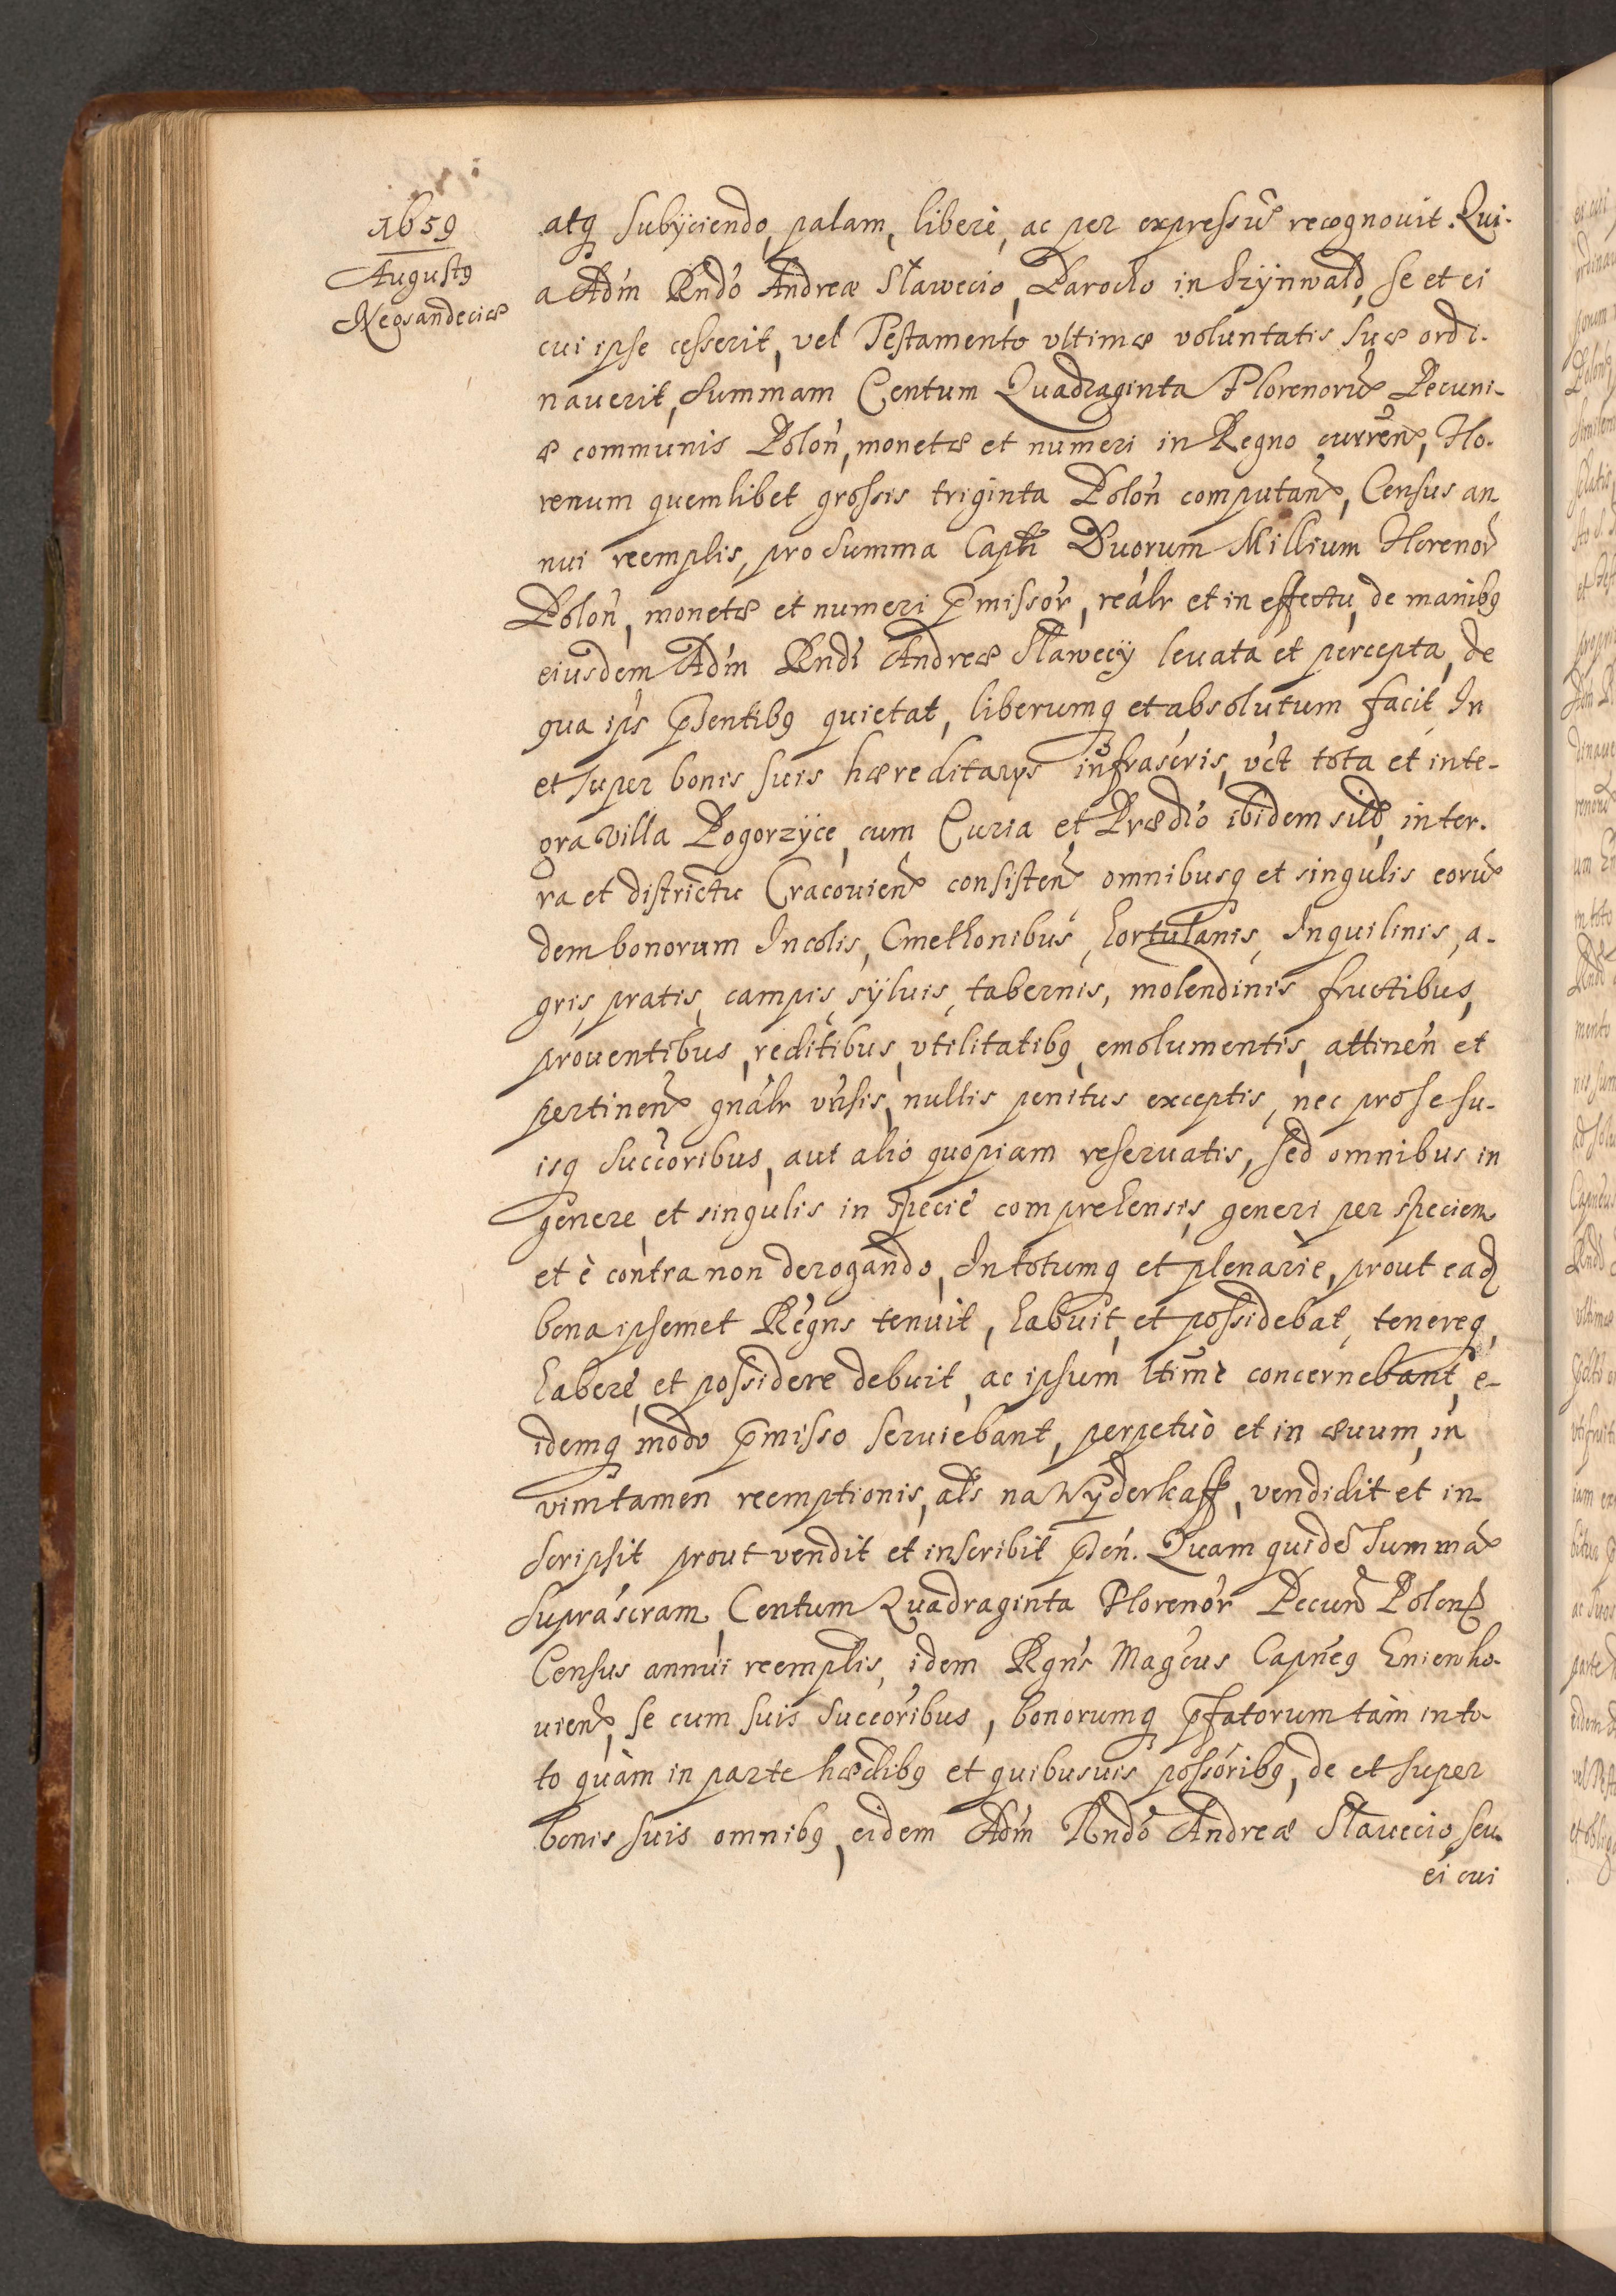 1659
Augustꝯ
Neosandeciæ
atqꝫ Subÿciendo, palam, libere, ac per expressũ recognouit. Qui-
a Adm̃ Rndo Andreæ Sławecio, Parocho in Szÿnwałd, se et ei
cui ipse cesserit, vel Testamento vltimæ voluntatis suæ ordi-
nauerit, Summam Centum Quadraginta Florenorũ Pecuni-
æ communis Polon̄, monetæ et numeri in Regno currēn, Flo-
renum quemlibet grossis triginta Polon̄ computan̄, Census an-
nui reemplis, pro Summa Captli Duorum Millium Florenor̄
Polon̄, monetæ et numeri p̄missor̄, realr et in effectu, de manibꝯ
eiusdem Adm̃ Rndi Andreæ Sławecÿ leuata et percepta, de
qua ips p̄sentibꝯ quietat, liberumqꝫ et absolutum facit, In
et super bonis suis hæreditarÿs infrascris, vct tota et inte-
gra villa Pogorzÿce, cum Curia et Prædio ibidem sitto, in ter-
ra et districtu Cracouien̄ consisten̄ omnibusqꝫ et singulis eorũ
dem bonorum Incolis, Cmethonibus, hortulanis, Inquilinis, a-
gris, pratis, campis, sÿluis, tabernis, molendinis fructibus,
prouentibus, reditibus, vtilitatibꝯ, emolumentis, attinen̄ et
pertinen̄ gnalr vnsis, nullis penitus exceptis, nec pro se su-
isqꝫ Succoribus, aut alio quopiam reseruatis, sed omnibus in
genere et singulis in specie comprehensis, generi per speciem
et è contra non derogando, In totumqꝫ et plenarie, prout eadꝫ
bona ipsemet Regns tenuit, habuit, et possidebat, tenereqꝫ,
habere, et possidere debuit, ac ipsum ltime concernebant, e-
idemqꝫ modo p̄misso seruiebant, perpetuò et in æuum, in
vim tamen reemptionis, als na Wÿderkaff, vendidit et in-
scripsit prout vendit et inscribit p̄sen̄. Quam quidẽ Summã
supráscram, Centum Quadraginta Florenor̄ Pecun̄ Polon̄
Census annui reemplis, idem Rgns Magcus Capneꝯ Enienko-
uien̄, se cum suis Succoribus, bonorumqꝫ p̄fatorum tàm in to-
to quàm in parte hædibꝯ et quibusuis possoribꝯ, de et super
bonis suis omnibꝯ, eidem Adm̃ Rndo Andreæ Sławecio, seu
ei cui